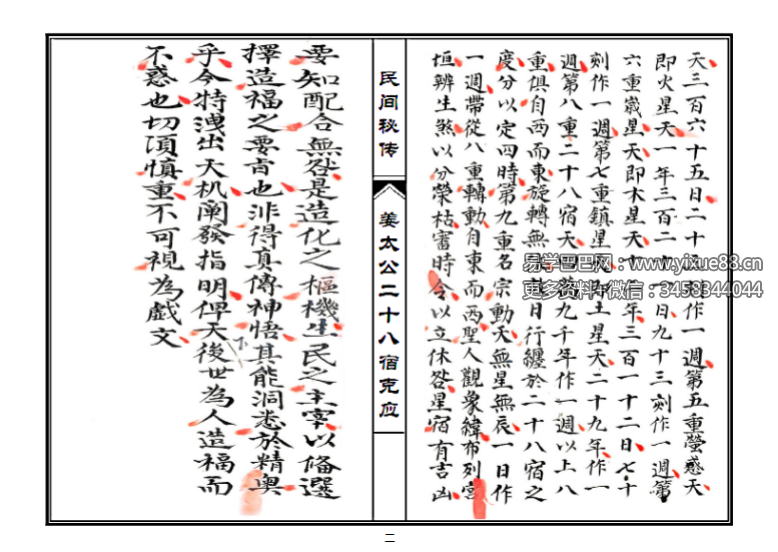 天三百六十五日二十五刻作一週第五重熒惑天
即火星天一年三百二十一日九十三刻作一週第
六重歲星天即木星天十一年三百一十二日七十
刻作一週第七重鎮星天即土星天二十九年作一
週第八重二十八宿天四萬九千年作一週以上八
重俱自西而東旋轉無日行纏於二十八宿之
度分以定四時第九重名宗動天無星無辰一日作
一週帶從八重轉動自東而西聖人觀象緯布列宮
垣辨生煞以分榮枯審時令以立休咎星宿有吉凶
民间秘传
姜太公二十八宿克应
要知配合無咎是造化之樞機生民之主宰以俻選
擇造福之要旨也非得真傳神悟其能洞悉於精奥
乎今特洩出天机阐發指明俾天下後世為人造福而
不惑也切須慎重不可視為戲文
易学巴巴网：www.yixue88.cn
更多资料加微信：3458344044
二